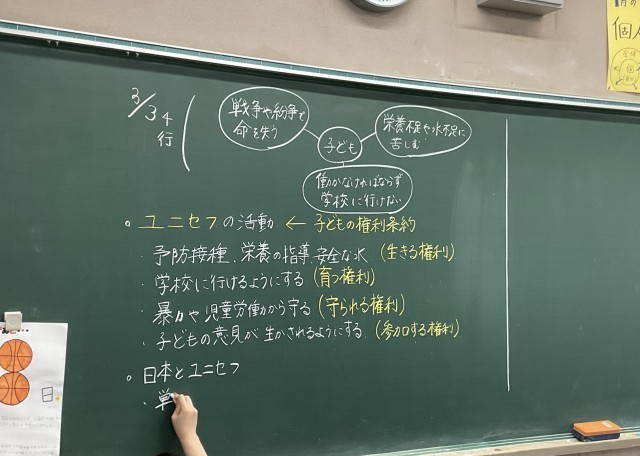 3/3 4行
戦争や紛争で
命を失う
子ども
栄養不足や水不足に
苦しむ
働かなければならず
学校に行けない
。ユニセフの活動 ← 子どもの権利条約
・予防接種、栄養の指導、安全な水 (生きる権利)
・学校に行けるようにする (育つ権利)
・暴力や児童労働から守る (守られる権利)
・子どもの意見が生かされるようにする (参加する権利)
。日本とユニセフ
・戦
個
日